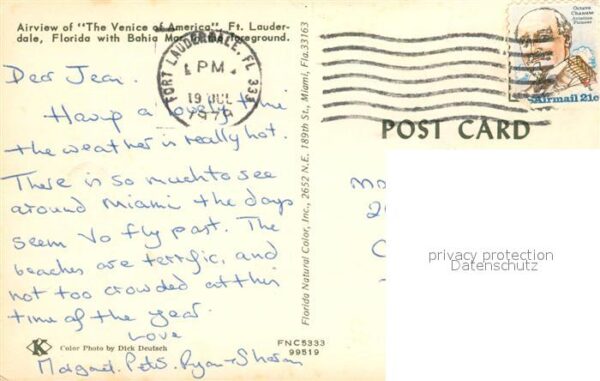 Airview of "The Venice of America", Ft. Lauder-
dale, Florida with Bahia Mar in the foreground.
Dear Jean.
Having a lovely time
the weather is really hot.
There is so much to see
around Miami the days
seem to fly past. The
beaches are terrific, and
not too crowded at this
time of the year.
Love
Margaret. Pete. Ryan + Sharon
K
Color Photo by Dick Deutsch
FNC5333
99519
Florida Natural Color, Inc., 2652 N.E. 189th St., Miami, Fla.33163
FORT LAUDERDALE, FL 333
PM
19 JUL
1979
Octave
Chanute
Aviation
Pioneer
USAirmail 21c
POST CARD
privacy protection
Datenschutz